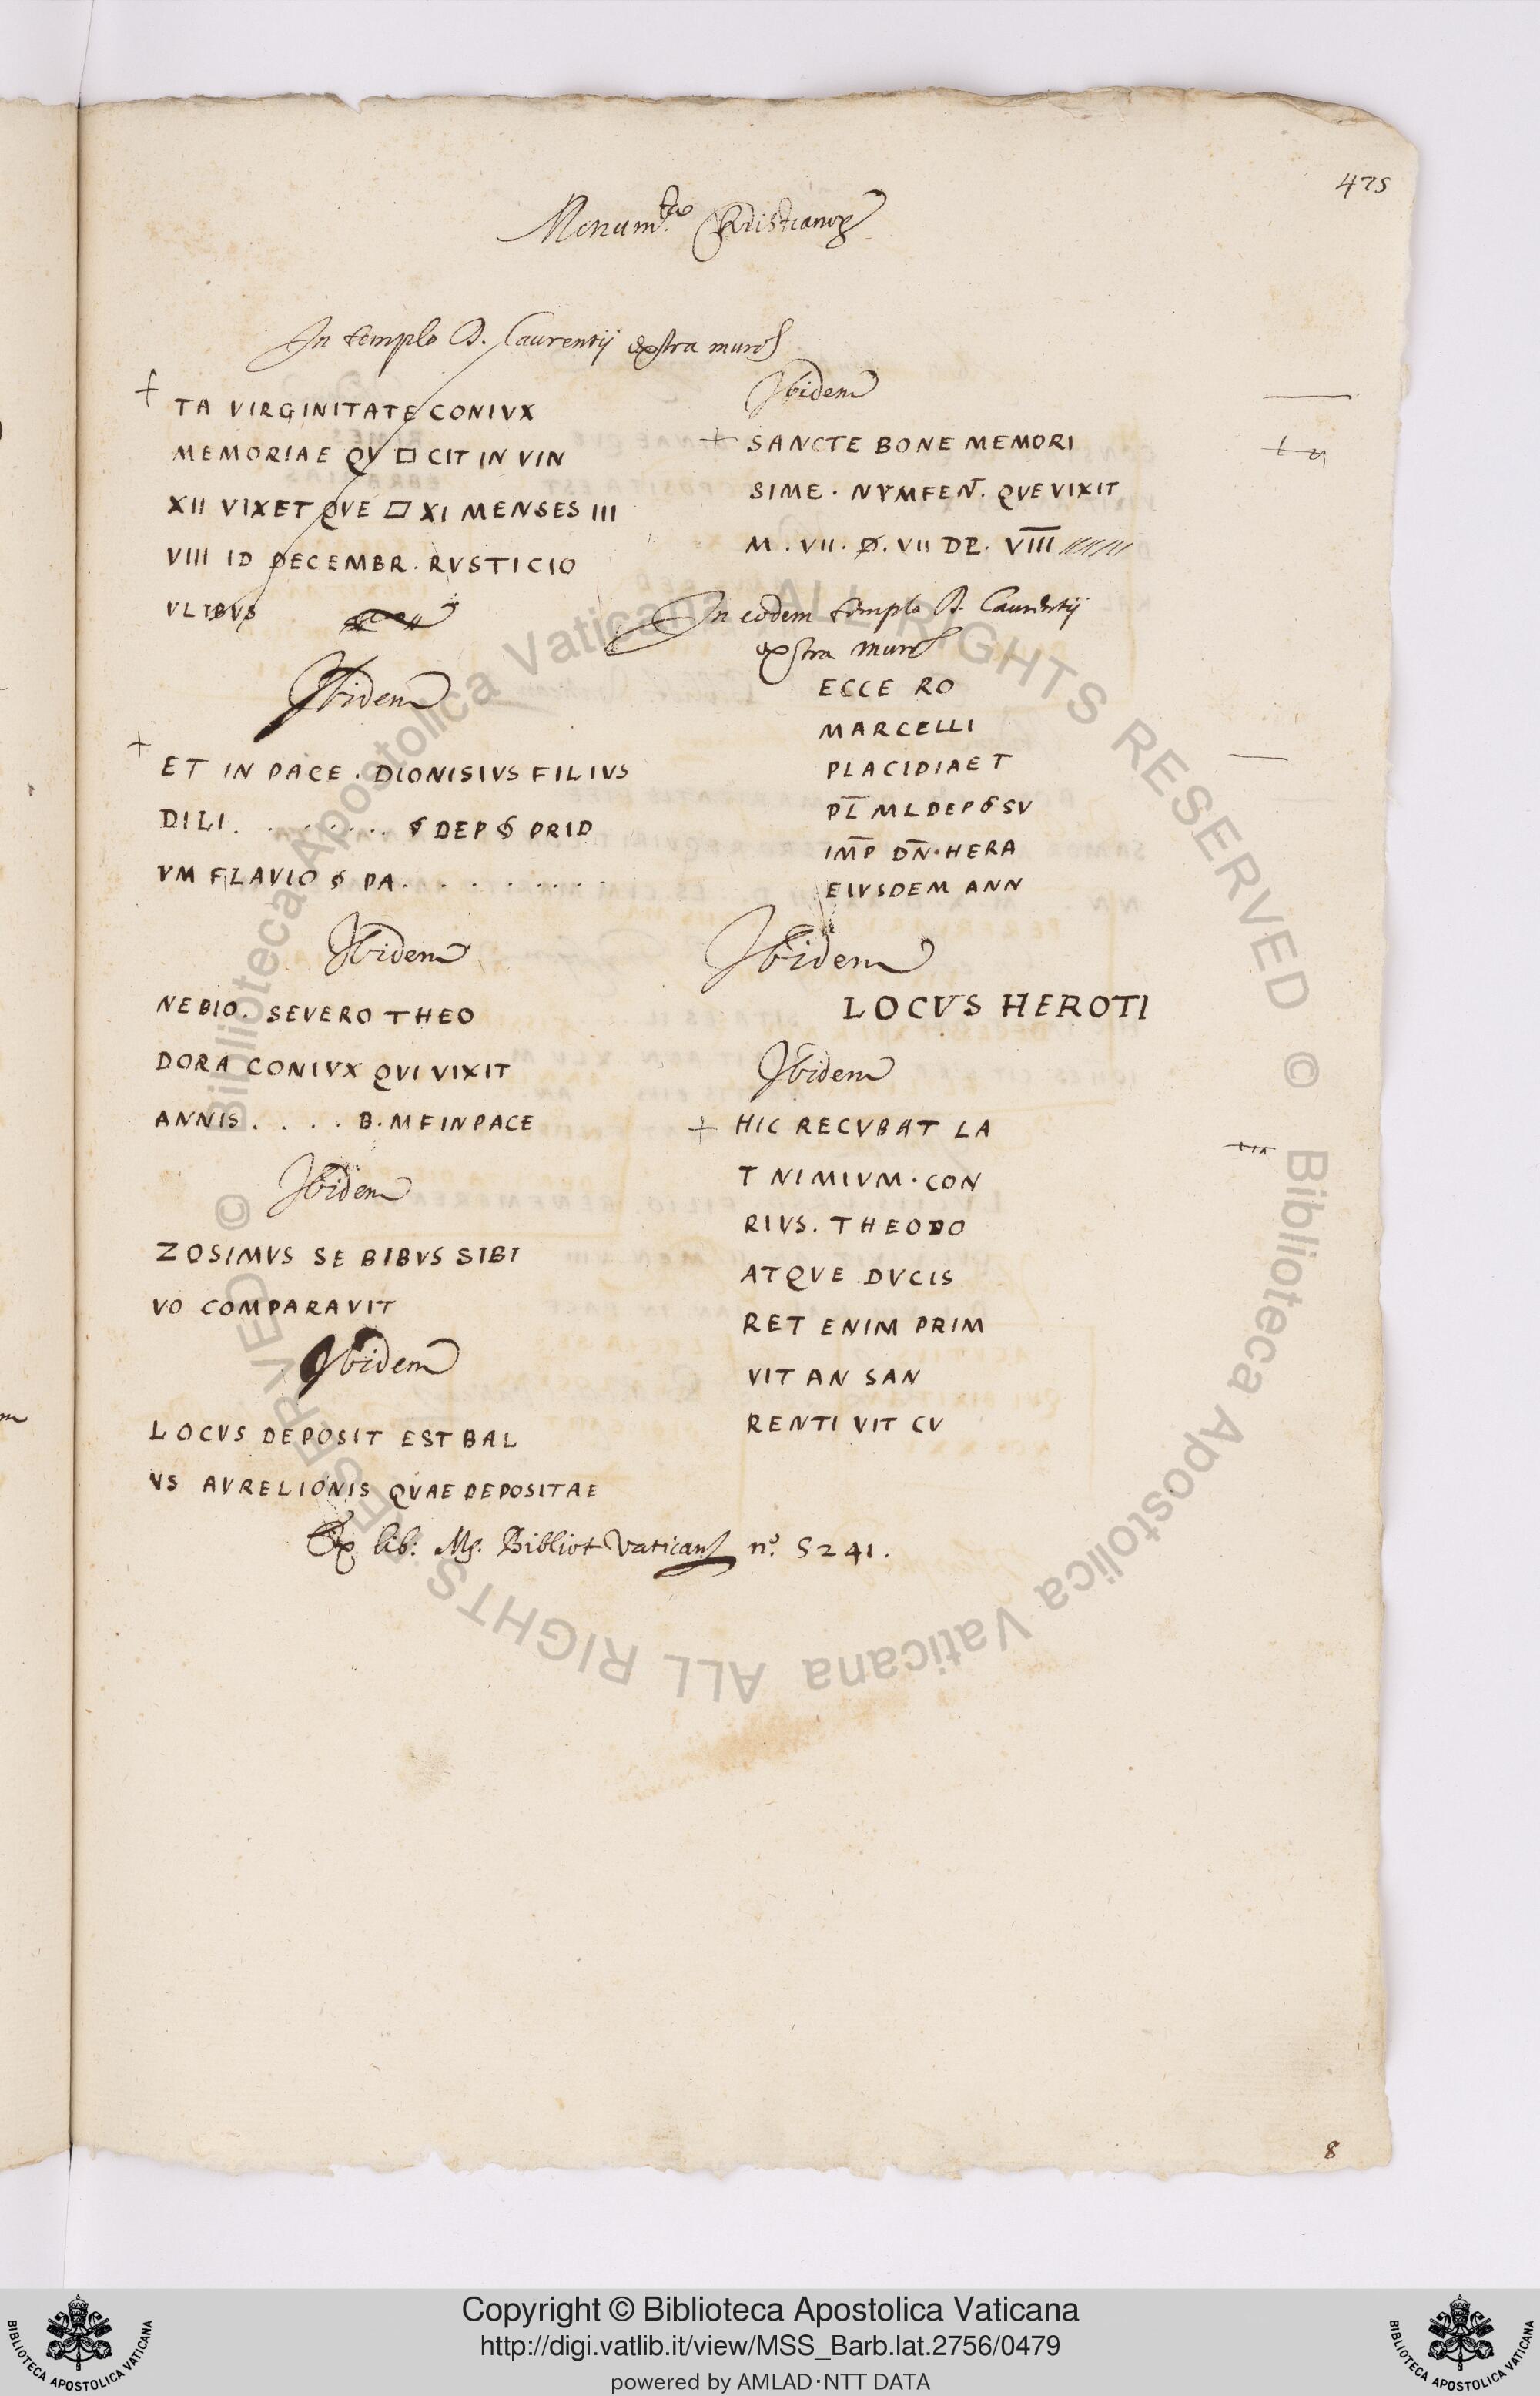 475
Monum.ta Christianor
In templo D. Laurentij extra muros
TA VIRGINITATE CONIVX
MEMORIAE QV □ CIT IN VIN
XII VIXET QVE □ XI MENSES III
VIII ID DECEMBR. RVSTICIO
VLIBVS
Ibidem
ET IN PACE. DIONISIVS FILIVS
DILI. . . . . . . . . DEP PRID
VM FLAVIO PA. . . . . . . . .
Ibidem
NEBIO. SEVERO THEO
DORA CONIVX QVI VIXIT
ANNIS. . . . B. M F IN PACE
Ibidem
ZOSIMVS SE BIBVS SIBI
VO COMPARAVIT
Ibidem
LOCVS DEPOSIT EST BAL
VS AVRELIONIS QVAE DEPOSITAE
Ex lib: Ms. Bibliot Vaticanę n.º 5241.
Ibidem
SANCTE BONE MEMORI
SIME. NYMFEN̄. QVE VIXIT
M. VII. Ø. VII DP. V̅I̅I̅I̅
In eodem templo D. Laurentij
extra muros
ECCE RO
MARCELLI
PLACIDIAE T
PL̄ ML DEPSV
IM̄P DN̄. HERA
EIVSDEM ANN
Ibidem
LOCVS HEROTI
Ibidem
HIC RECVBAT LA
T NIMIVM. CON
RIVS. THEODO
ATQVE DVCIS
RET ENIM PRIM
VIT AN SAN
RENTI VIT CV
8
Copyright © Biblioteca Apostolica Vaticana
http://digi.vatlib.it/view/MSS_Barb.lat.2756/0479
powered by AMLAD·NTT DATA
BIBLIOTECA APOSTOLICA VATICANA
BIBLIOTECA APOSTOLICA VATICANA
© Biblioteca Apostolica Vaticana ALL RIGHTS RESERVED
© Biblioteca Apostolica Vaticana ALL RIGHTS RESERVED